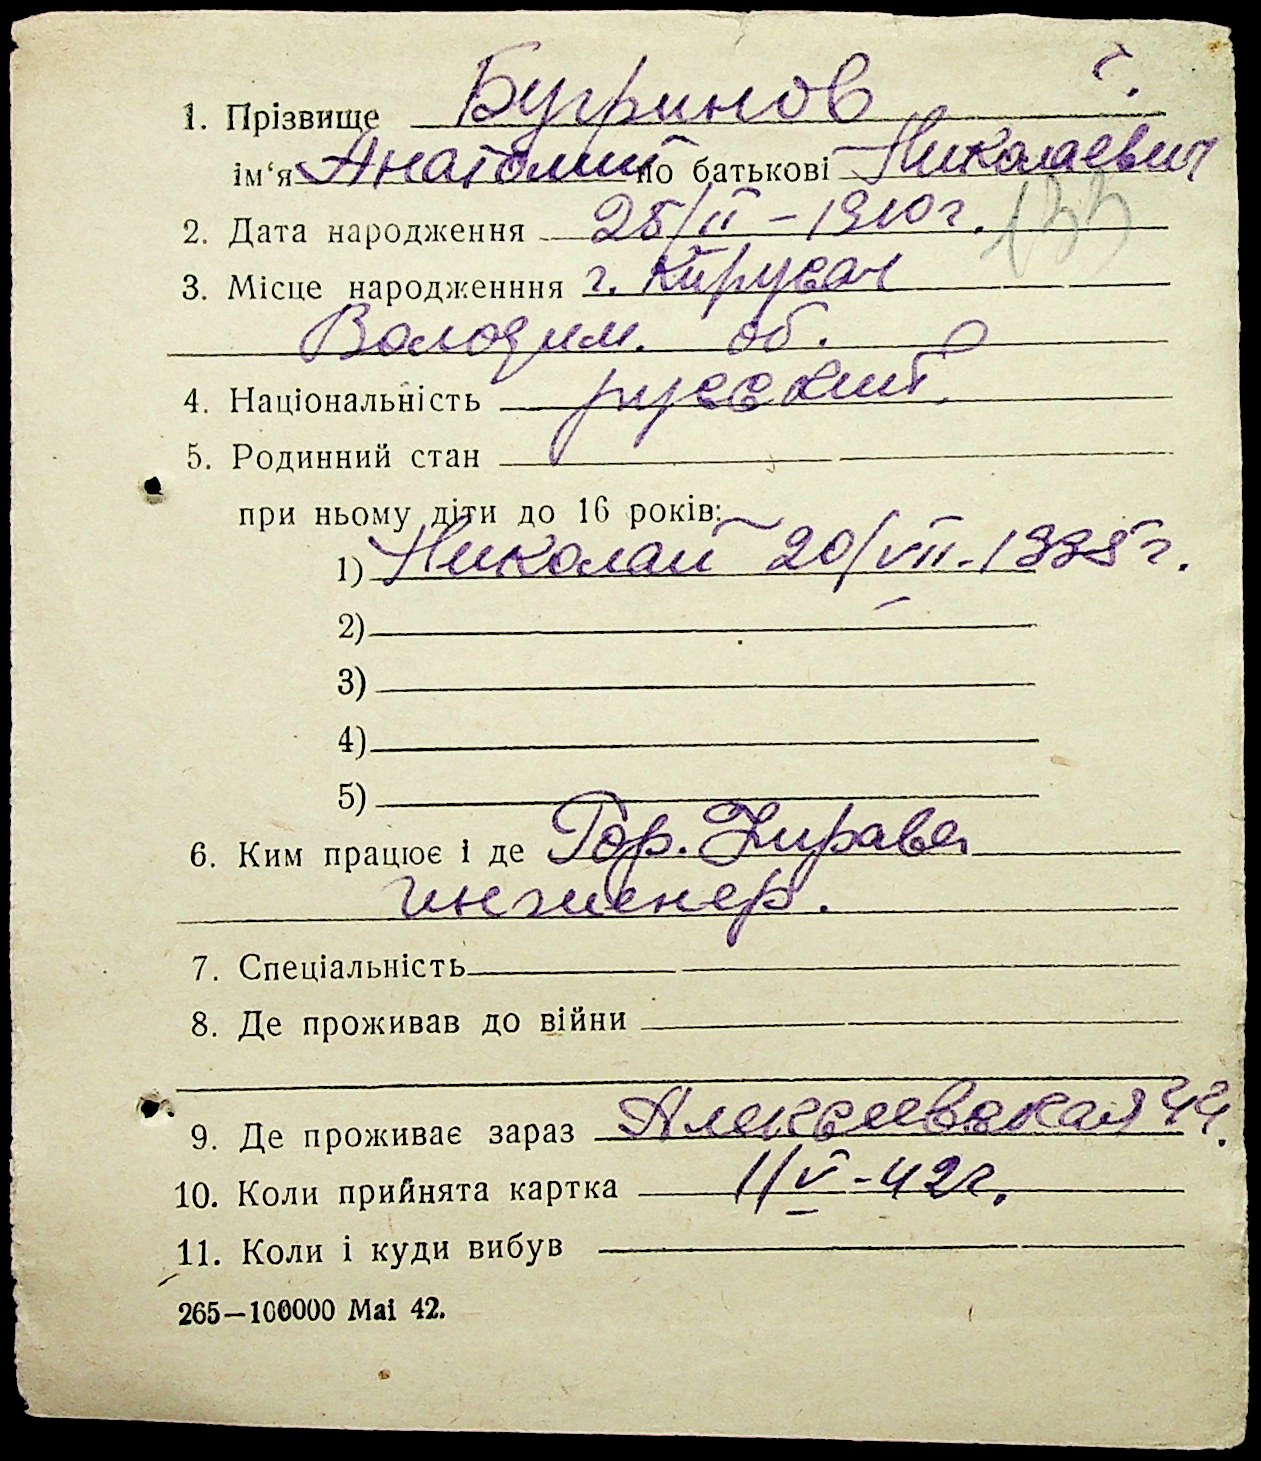 1. Прізвище Бугринов
ім‘я Анатолий по батькові Николаевич
2. Дата народження 25/II – 1910 г.
3. Місце народженння г.
Володим. об.
4. Національність русский
5. Родинний стан
при ньому діти до 16 років:
1) Николай 20/VII - 1935 г.
2)
3)
4)
5)
6. Ким працює і де Гор. Управа
инженер.
7. Спеціальність
8. Де проживав до війни
9. Де проживає зараз Алексеевская 44.
10. Коли прийнята картка 1/V - 42 г.
11. Коли і куди вибув
265—100000 Mai 42.